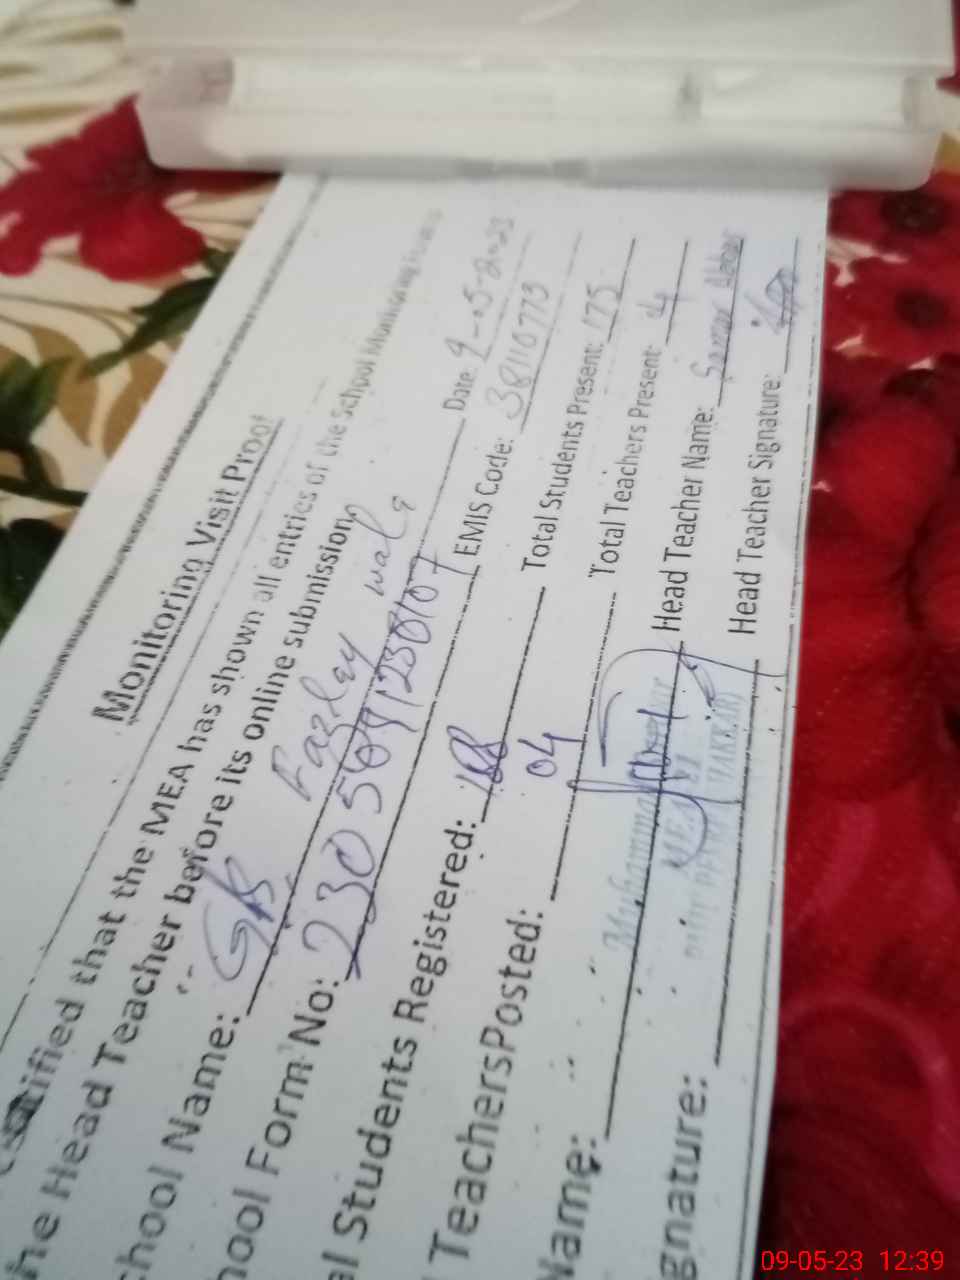 Monitoring Visit Proof
tified that the MEA has shown all entries of the School Monitoring
he Head Teacher before its online submission.
chool Name: GPS Fazley wala Date: 9-05-2023
hool Form No: 230509123807 EMIS Code: 38110773
al Students Registered: 188 Total Students Present: 175
TeachersPosted: 04 Total Teachers Present: 4
Name: Muhammad Head Teacher Name: Samar Abbas
ignature: Head Teacher Signature:
MEA
09-05-23 12:39